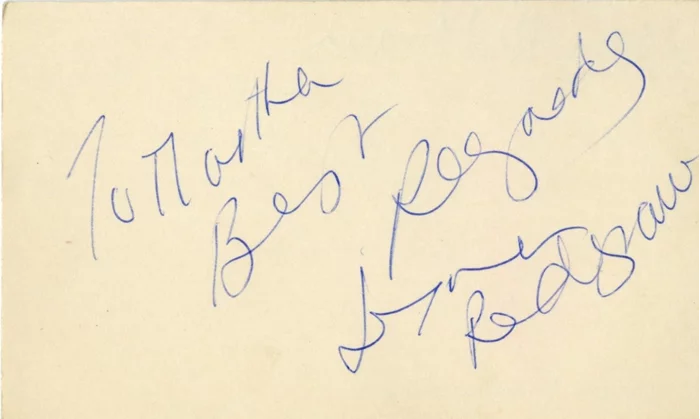 To Martha
Best Regards
Lynn
Redgrave